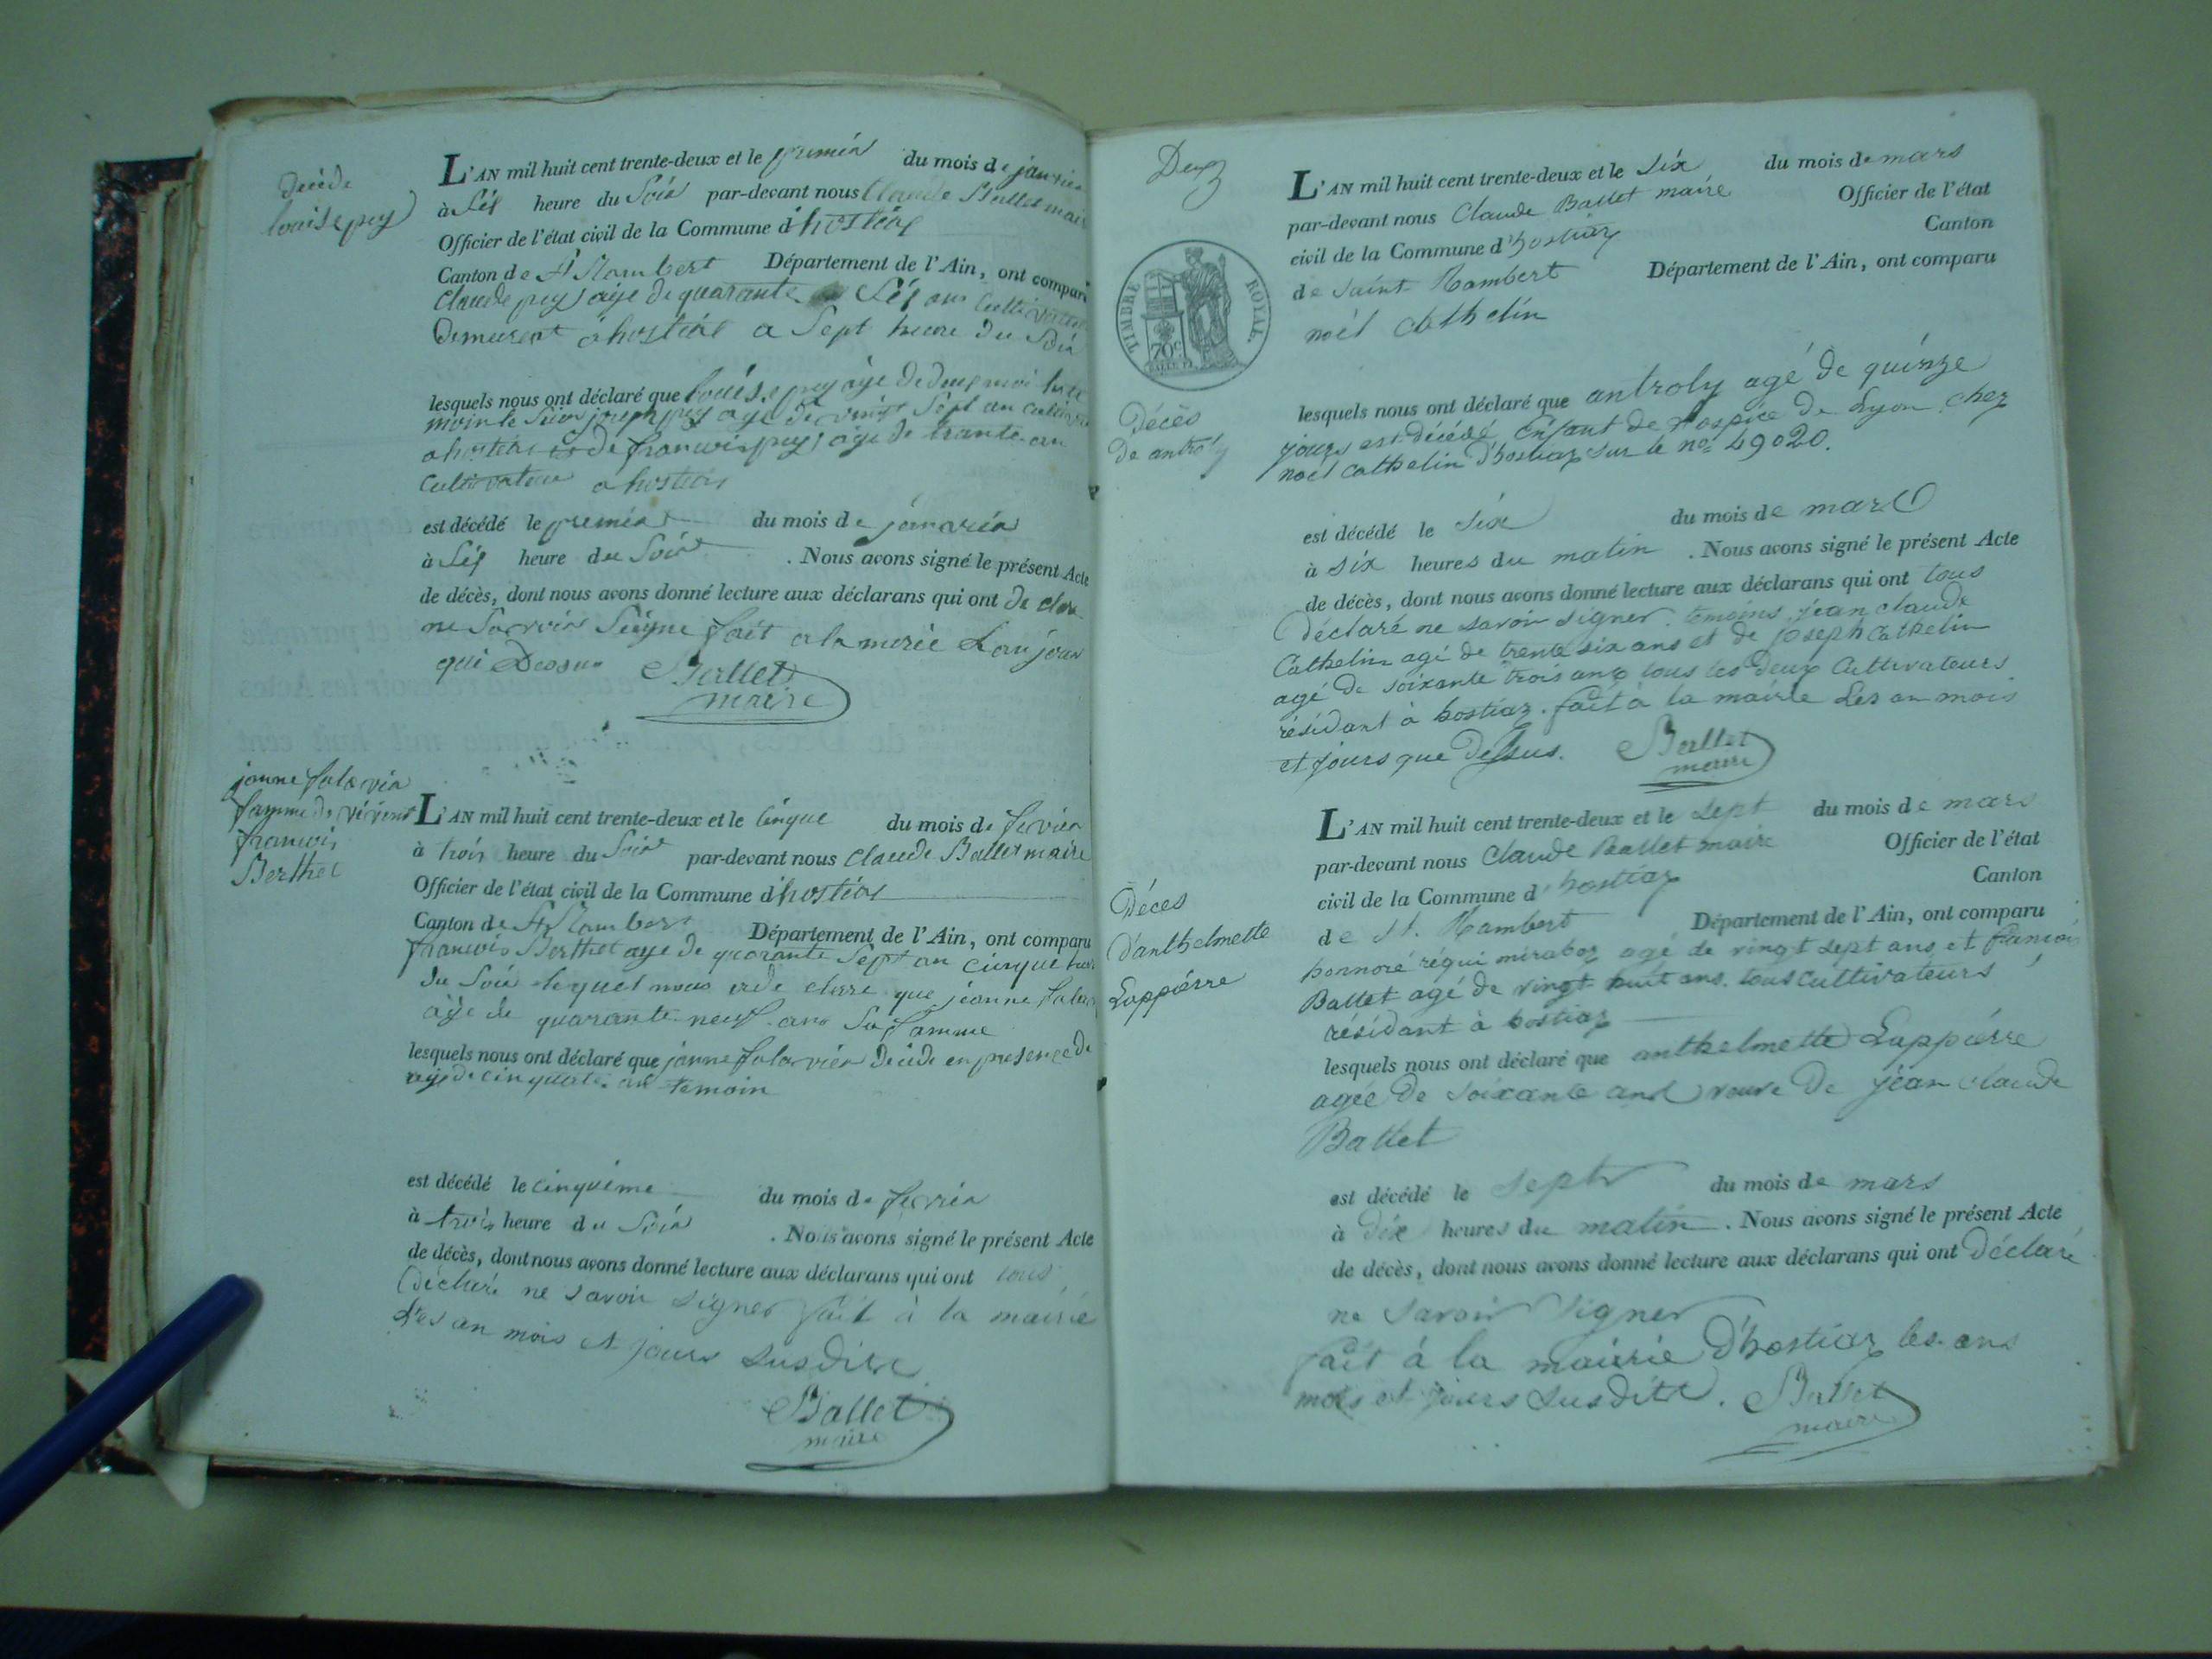 Décéde
louise pey
L'AN mil huit cent trente-deux et le premiér du mois de janvier
à Sis heure du Soir par-devant nous Claude Ballet mair
Officier de l'état civil de la Commune d'hostias
Canton de St Rambert Département de l'Ain, ont comparu
Claude pey age de quarante Sis ans Cultivateur
demeurent a hostias a Sept heure du Soir
lesquels nous ont déclaré que Louise pey age de deus moi
moin le Sieur joseph pey age de vingt Sept an cultiva
a hostias et de francois pey age de trante an
Cultivateur a hostias
est décédé le premier du mois de janvier
à Sis heure du Soir . Nous avons signé le présent Acte
de décès, dont nous avons donné lecture aux déclarans qui ont de clare
ne Savoir Seigne fait a la merie L'an jour
que Dessu Ballet
maire
janne falavier
famme de vivent
francois
Berthet
L'AN mil huit cent trente-deux et le Cinque du mois de fevrier
à trois heure du Soir par-devant nous Claude Ballet maire
Officier de l'état civil de la Commune d'hostias
Canton de St Rambert Département de l'Ain, ont comparu
francois Berthet age de quarante Sept an Cinque heure
du Soir lequel nous a de clare que jeanne
age de quarante neuf ans Sa famme
lesquels nous ont déclaré que janne falavier décéde en presence de
age de cinquante an temoin
est décédé le cinquième du mois de fevrier
à trois heure du Soir . Nous avons signé le présent Acte
de décès, dont nous avons donné lecture aux déclarans qui ont tous
déclaré ne savoir signer fait à la mairie
Les an mois et jours susdits
Ballet
maire
Deux
TIMBRE ROYAL
70c
Décès
de antroly
L'AN mil huit cent trente-deux et le six du mois de mars
par-devant nous Claude Ballet maire Officier de l'état
civil de la Commune d'hostiaz Canton
de Saint Rambert Département de l'Ain, ont comparu
noël Cathelin
lesquels nous ont déclaré que antroly agé de quinze
jours est décédé enfant de hospice de Lyon chez
noël Cathelin d'hostiaz sur le no 49020.
est décédé le six du mois de mars
à six heures du matin . Nous avons signé le présent Acte
de décès, dont nous avons donné lecture aux déclarans qui ont tous
déclaré ne savoir signer. temoins jean claude
Cathelin agé de trente six ans et de joseph Cathelin
agé de soixante trois ans tous les deux Cultivateurs
résidant à hostiaz. fait à la mairie Les an mois
et jours que dessus. Ballet
maire
Déces
D'anthelmette
Lappiérre
L'AN mil huit cent trente-deux et le sept du mois de mars
par-devant nous Claude Ballet maire Officier de l'état
civil de la Commune d'hostiaz Canton
de St. Rambert Département de l'Ain, ont comparu
honnoré réqui méraboz agé de vingt sept ans et francois
Ballet agé de vingt huit ans. tous Cultivateurs
résidant à hostiaz
lesquels nous ont déclaré que anthelmette Lappiérre
agée de soixante ans veuve de jean claude
Ballet
est décédé le sept du mois de mars
à dix heures du matin . Nous avons signé le présent Acte
de décès, dont nous avons donné lecture aux déclarans qui ont déclaré
ne savoir signer
fait à la mairie D'hostiaz les ans
mois et jours susdits. Ballet
maire